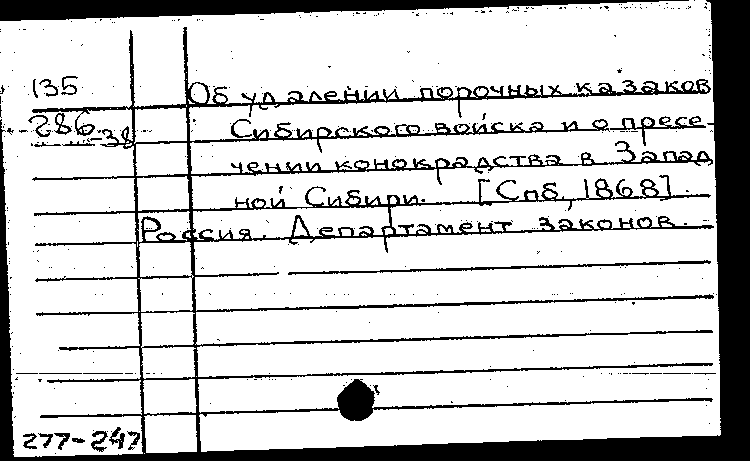 135
286-38
Об удалении порочных казаков
Сибирского войска и о пресе-
чении конокрадства в Запад
ной Сибири. [Спб, 1868].
Россия. Департамент законов.
277-247